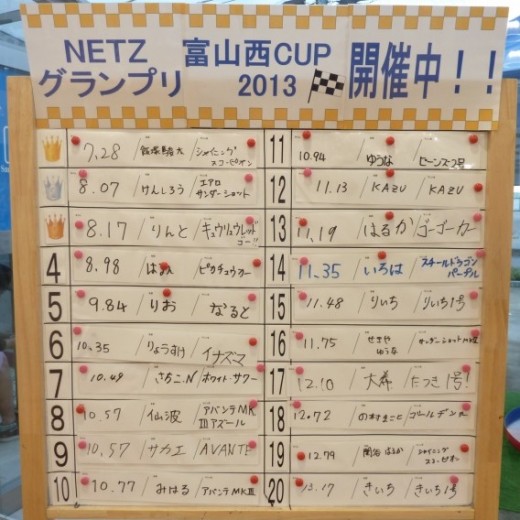 NETZ 富山西CUP
グランプリ 2013 開催中!!
7.28 / / シャイニングスコーピオン
8.07 / けんしろう / エアロサンダーショット
8.17 / りんと / キュウリュウレッドゴー
4 8.98 / / ピカチュウカー
5 9.84 / りお / なると
6 10.35 / りょうすけ / イナズマ
7 10.49 / さちこ.N / ホワイトサワー
8 10.57 / 仙波 / アバンテMKIIIアズール
9 10.57 / サカエ / AVANTE
10 10.77 / みはる / アバンテMKIII
11 10.94 / ゆうな / セーンズ2号
12 11.13 / KAZU / KAZU
13 11.19 / はるか / ゴーゴーカー
14 11.35 / いろは / スチールドラゴンパープル
15 11.48 / りいち / りいち1号
16 11.75 / せきやゆうな / サンダーショットMKII
17 12.10 / 大尋 / たつき1号!
18 12.72 / のむらまこと / ゴールデン
19 12.79 / 関谷はるか / シャイニングスコーピオン
20 13.17 / きいち / きいち1号